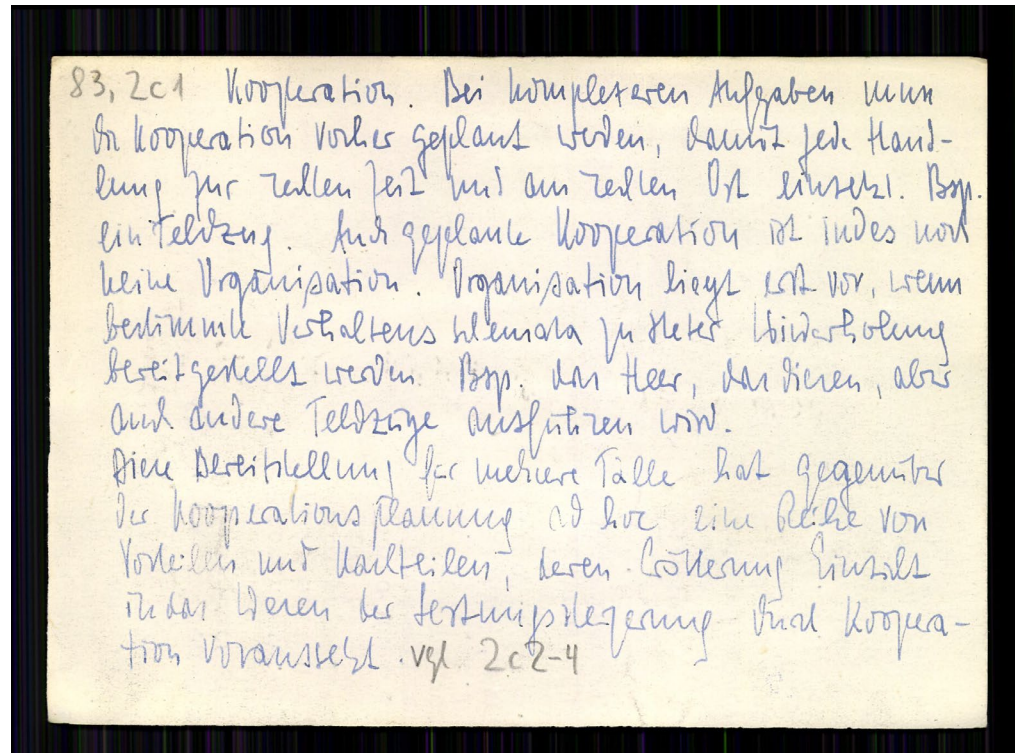 83,2c1 Kooperation. Bei komplexeren Aufgaben muss
die Kooperation vorher geplant werden, damit jede Hand-
lung zur rechten Zeit und am rechten Ort einsetzt. Bsp.
ein Feldzug. Auch geplante Kooperation ist indes noch
keine Organisation. Organisation liegt erst vor, wenn
bestimmte Verhaltensschemata zu steter Wiederholung
bereitgestellt werden. Bsp. das Heer, das diesen, aber
auch andere Feldzüge ausführen wird.
Diese Bereitstellung für mehrere Fälle hat gegenüber
der Kooperationsplanung ad hoc eine Reihe von
Vorteilen und Nachteilen, deren Erörterung Einsicht
in das Wesen der Leistungssteigerung durch Koopera-
tion voraussetzt. vgl. 2c2-4